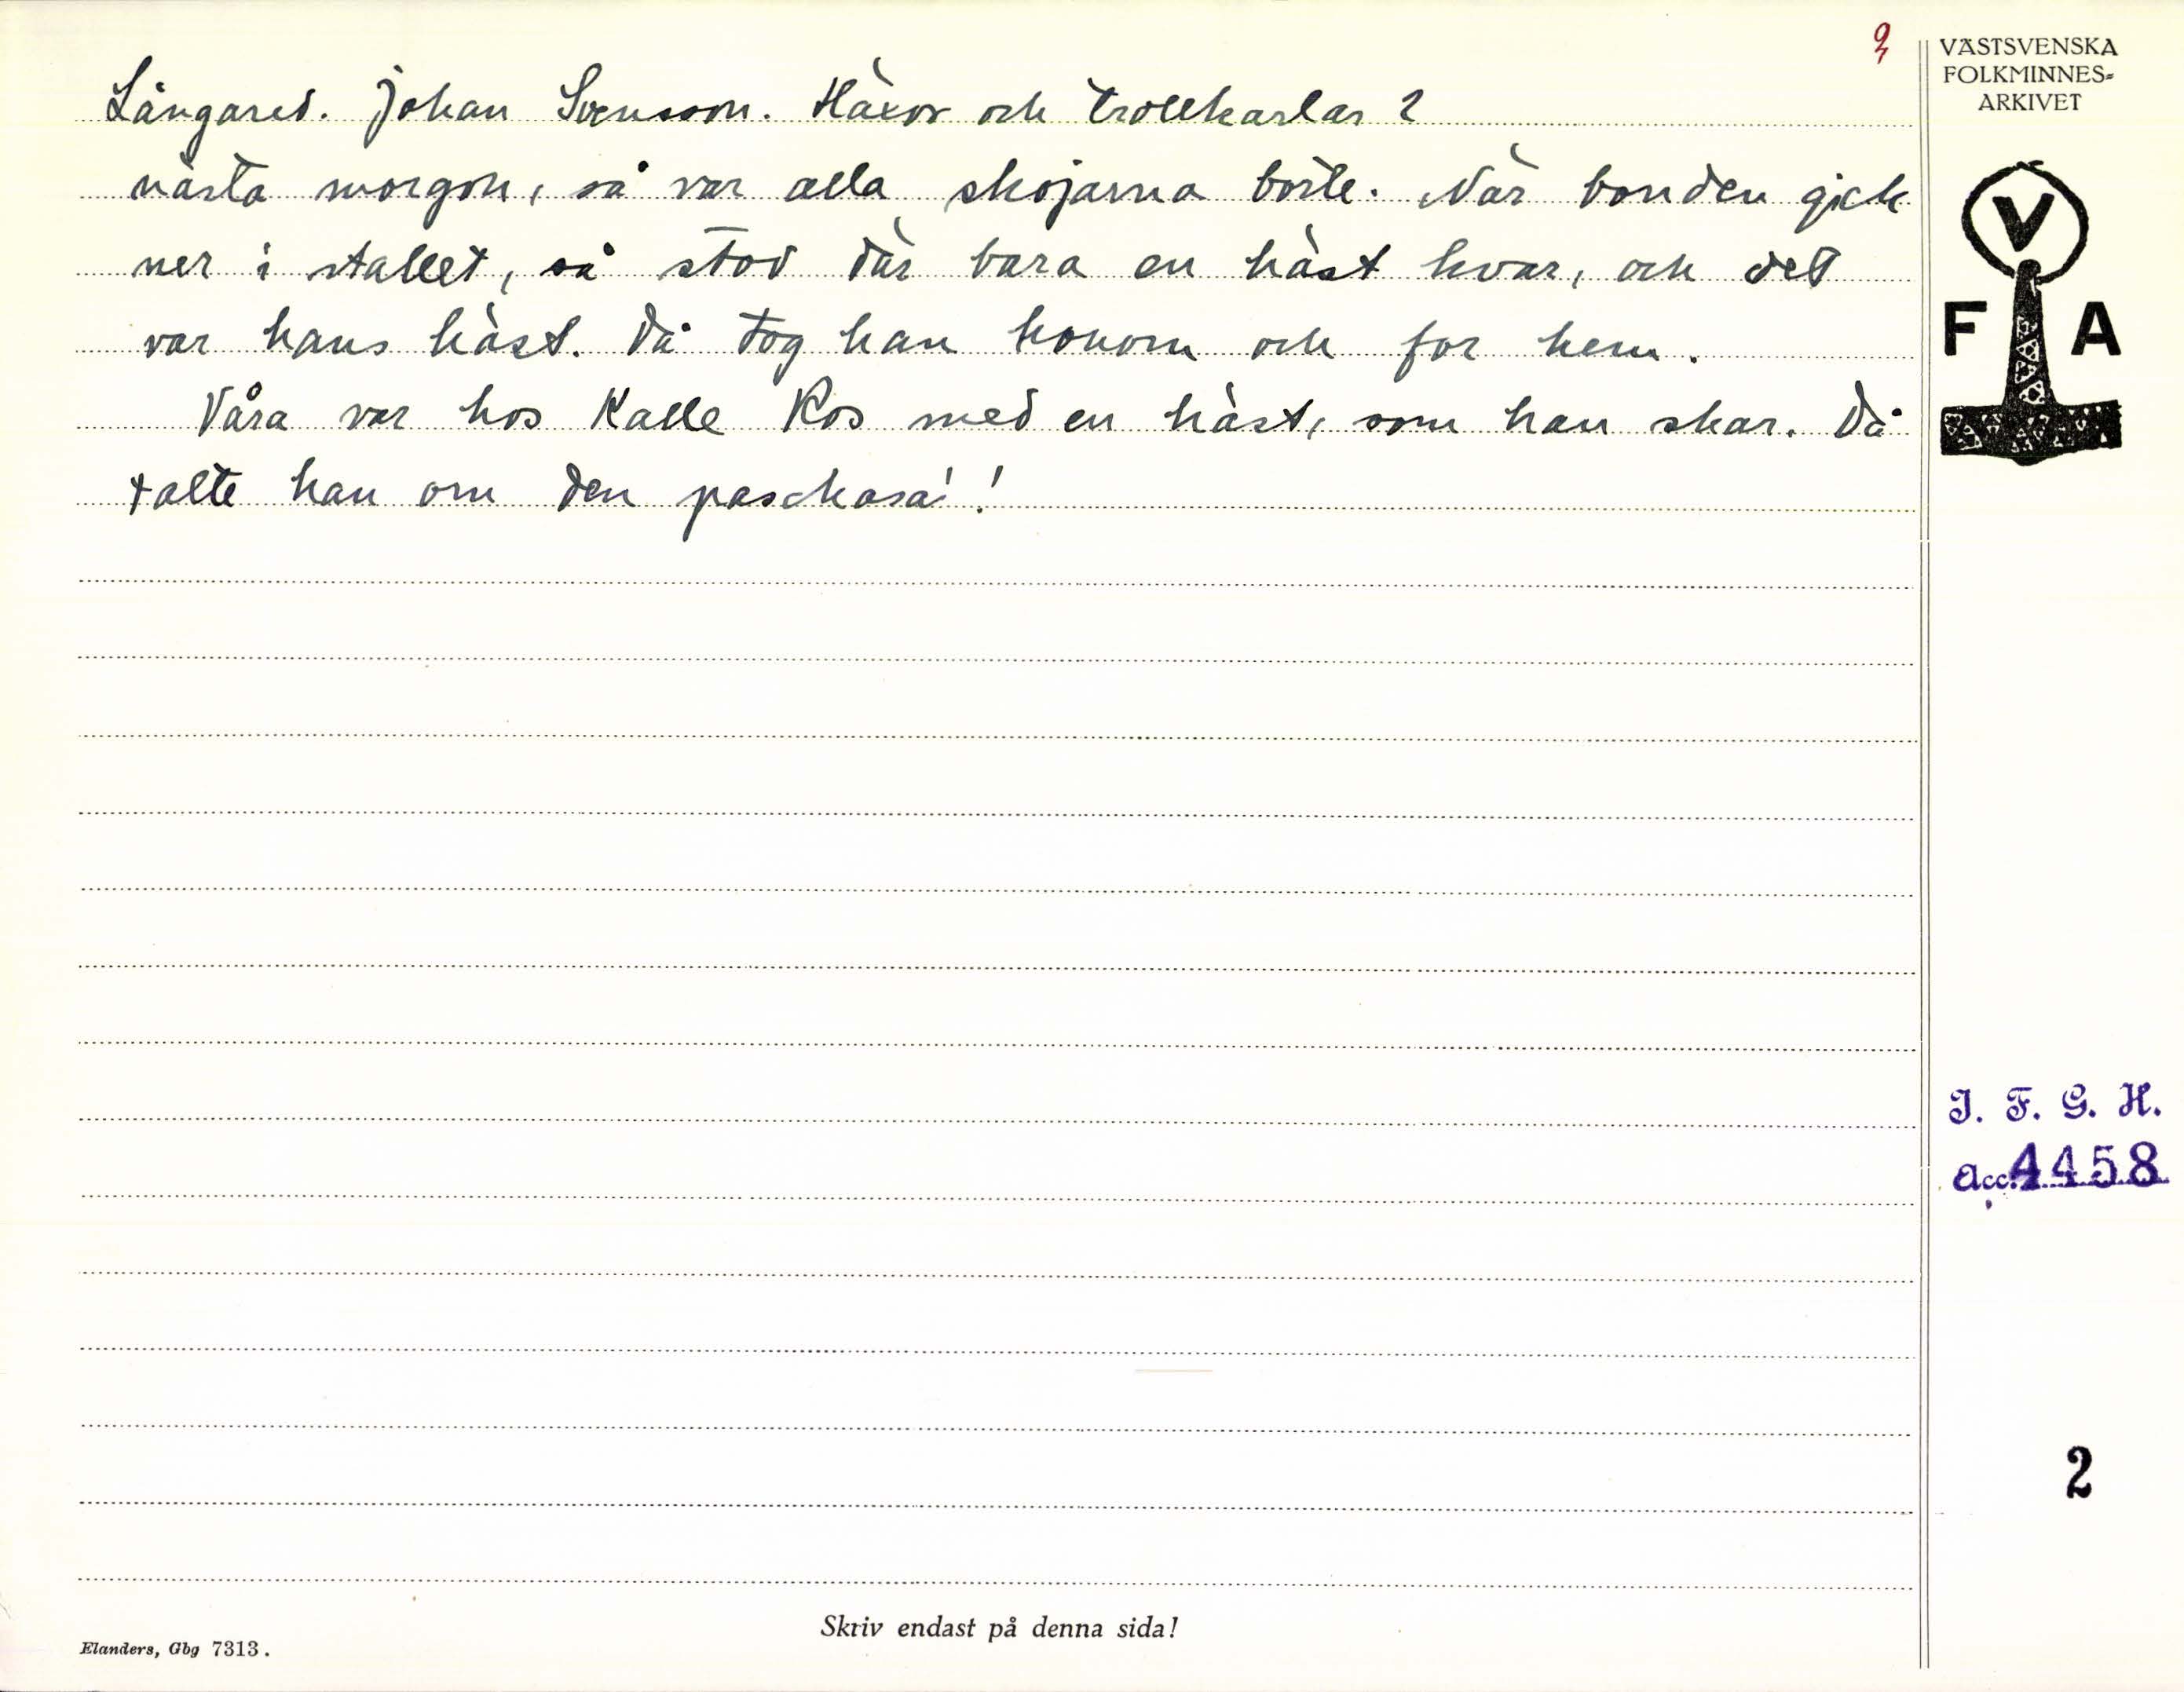 3
Långared. Johan Svensson. Häxor och trollkarlar 2
nästa morgon, så var alla skojarna borte. När bonden gick
ner i stallet, så stod där bara en häst kvar, och det
var hans häst. Då tog han honom och for hem.
Våra var hos Kalle Ros med en häst, som han skar. Då
talte han om den
VÄSTSVENSKA
FOLKMINNES=
ARKIVET
V
F A
I. F. G. H.
Acc. 4458
2
Skriv endast på denna sida!
Elanders, Gbg 7313.